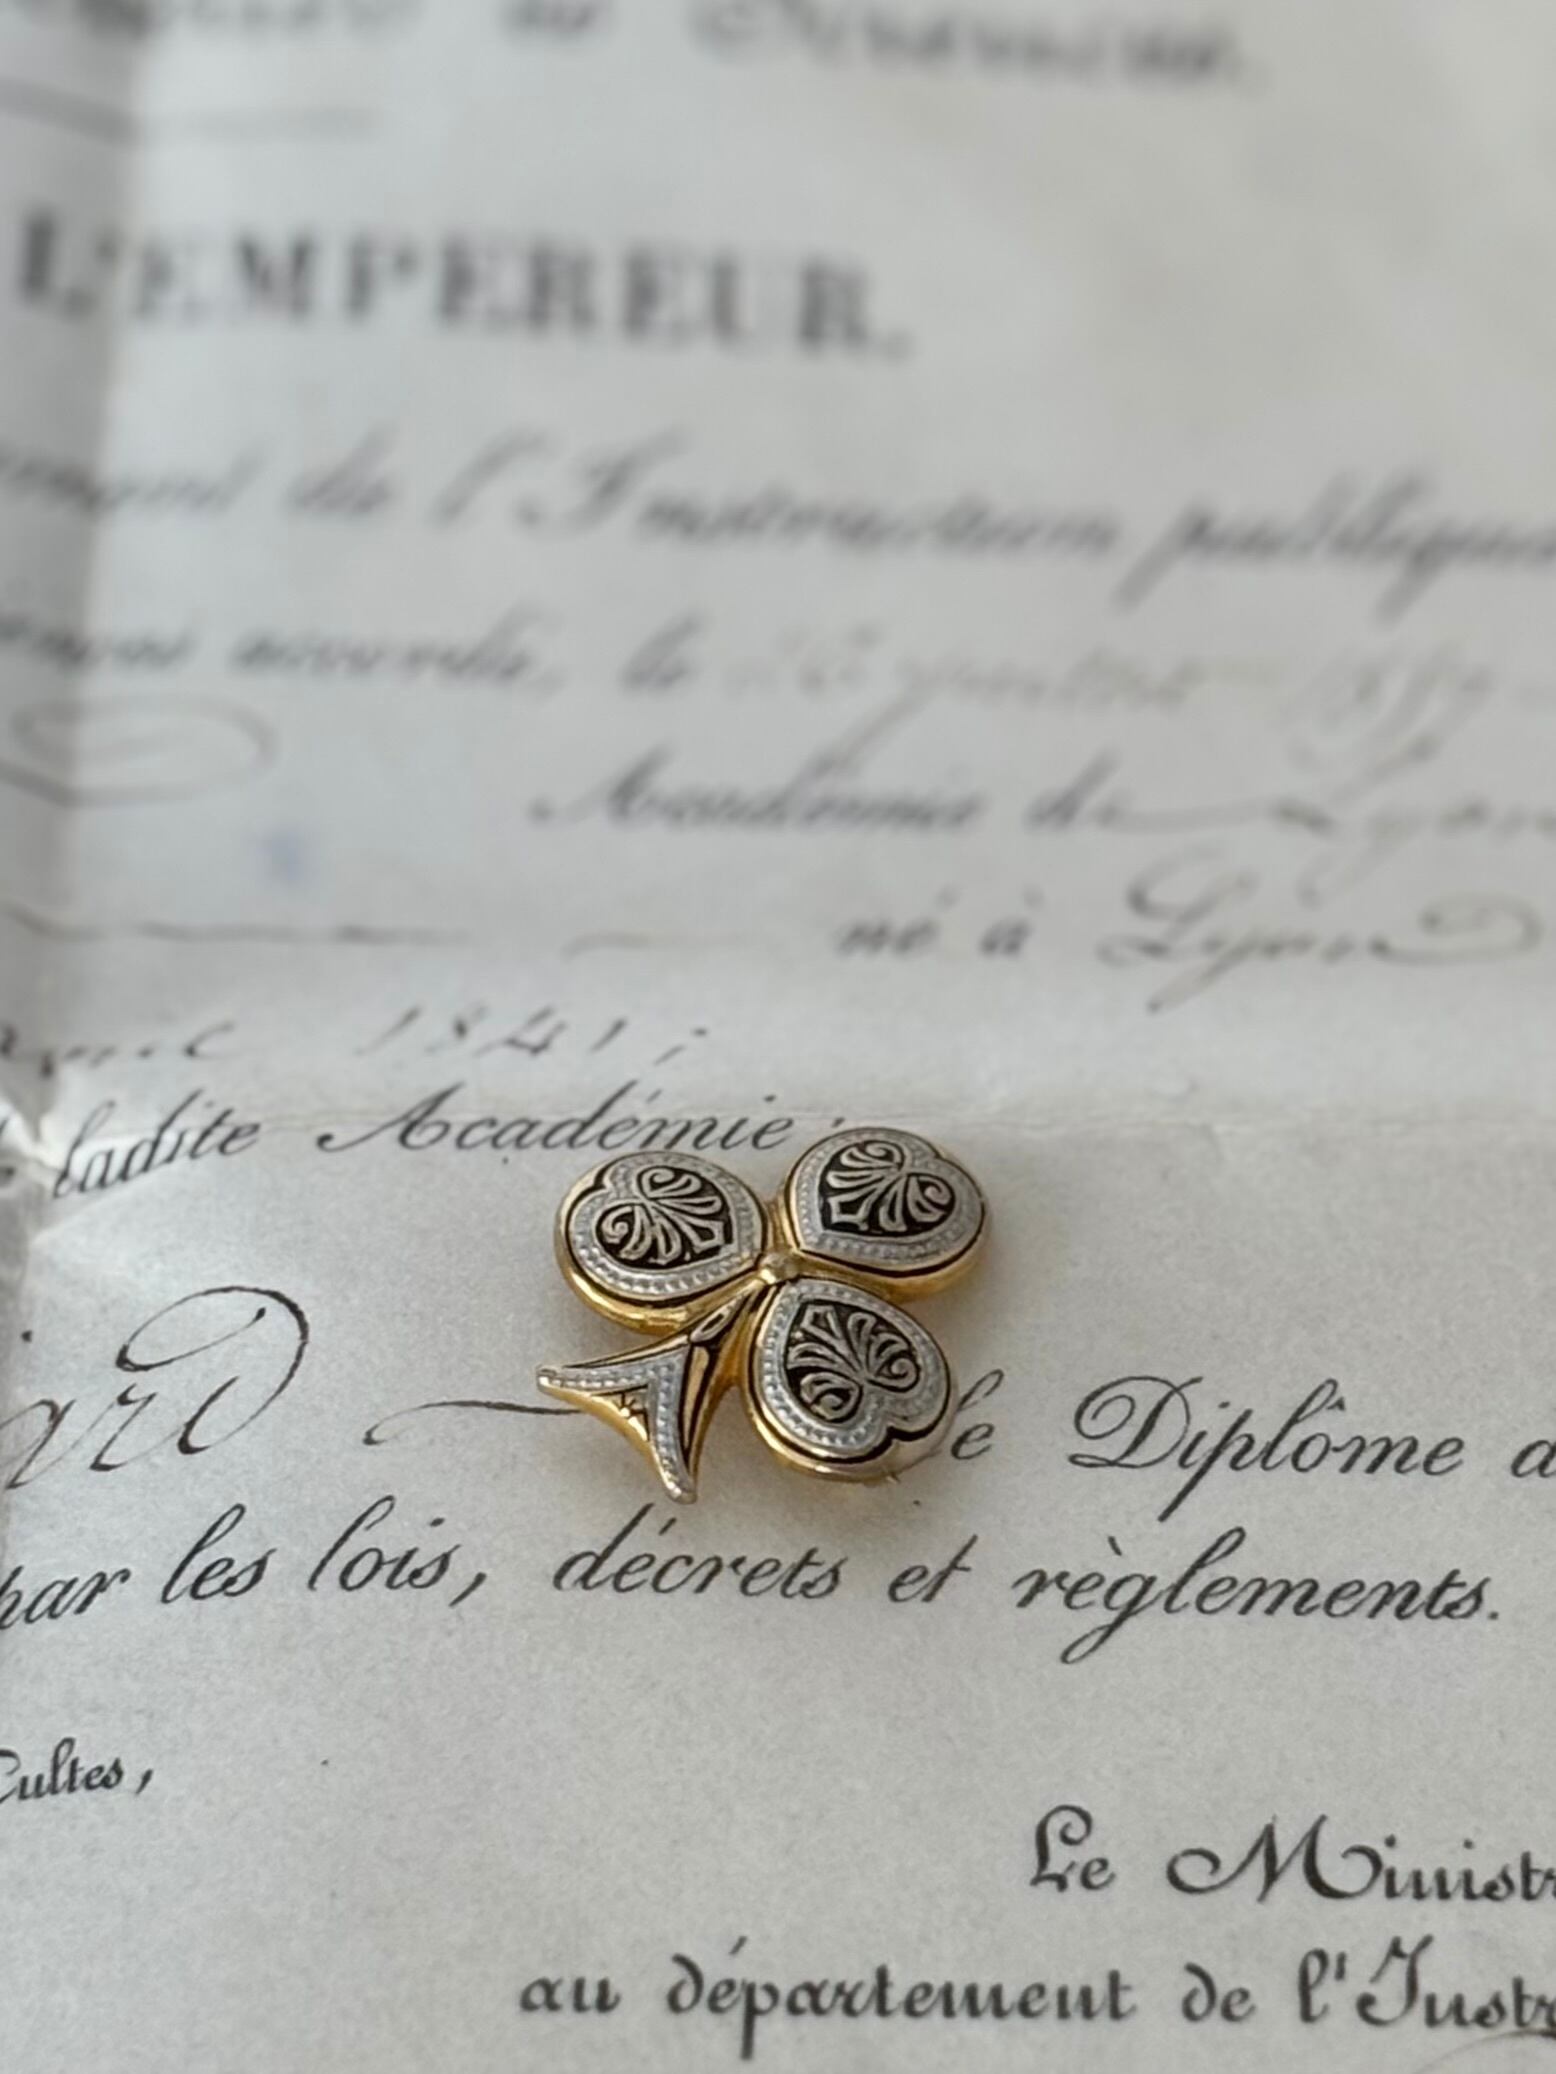 L'EMPEREUR.
de l'Instruction publique
accordé, le
Académie de Lyon
né à Lyon
1841;
ladite Académie;
le Diplôme d
par les lois, décrets et règlements.
Cultes,
Le Ministr
au département de l'Instr